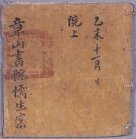 乙未十一月日
院上
章山書院儒生案